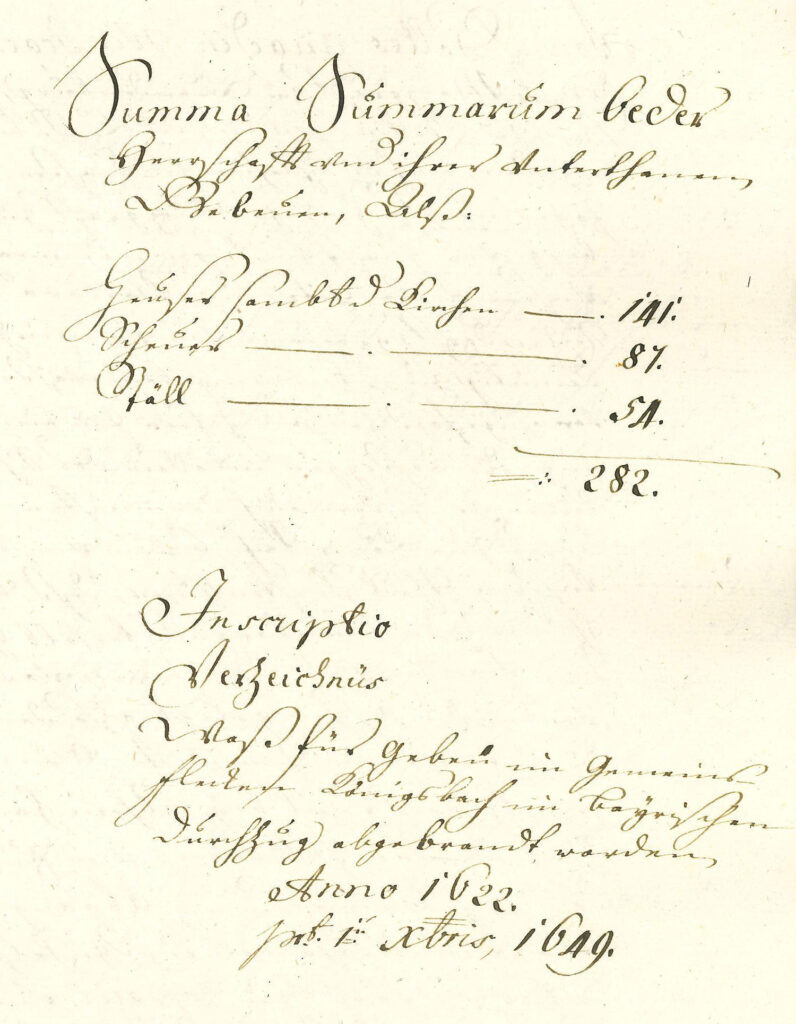 Summa Summarum beder
Herrschafft vnd ihrer Unterthanen
Gebeuen, Alß:
Heuser sambt d Kirchen — . 141.
Scheuer — . — . 87.
Ställ — . — . 54.
=:. 282.
Inscriptio
Verzeichnüs
Waß für Gebeü im Gemeins
Flecken Königsbach im Bayrischen
Durchzug abgebrandt worden
Anno 1622.
prt. 1ii Xbris, 1649.